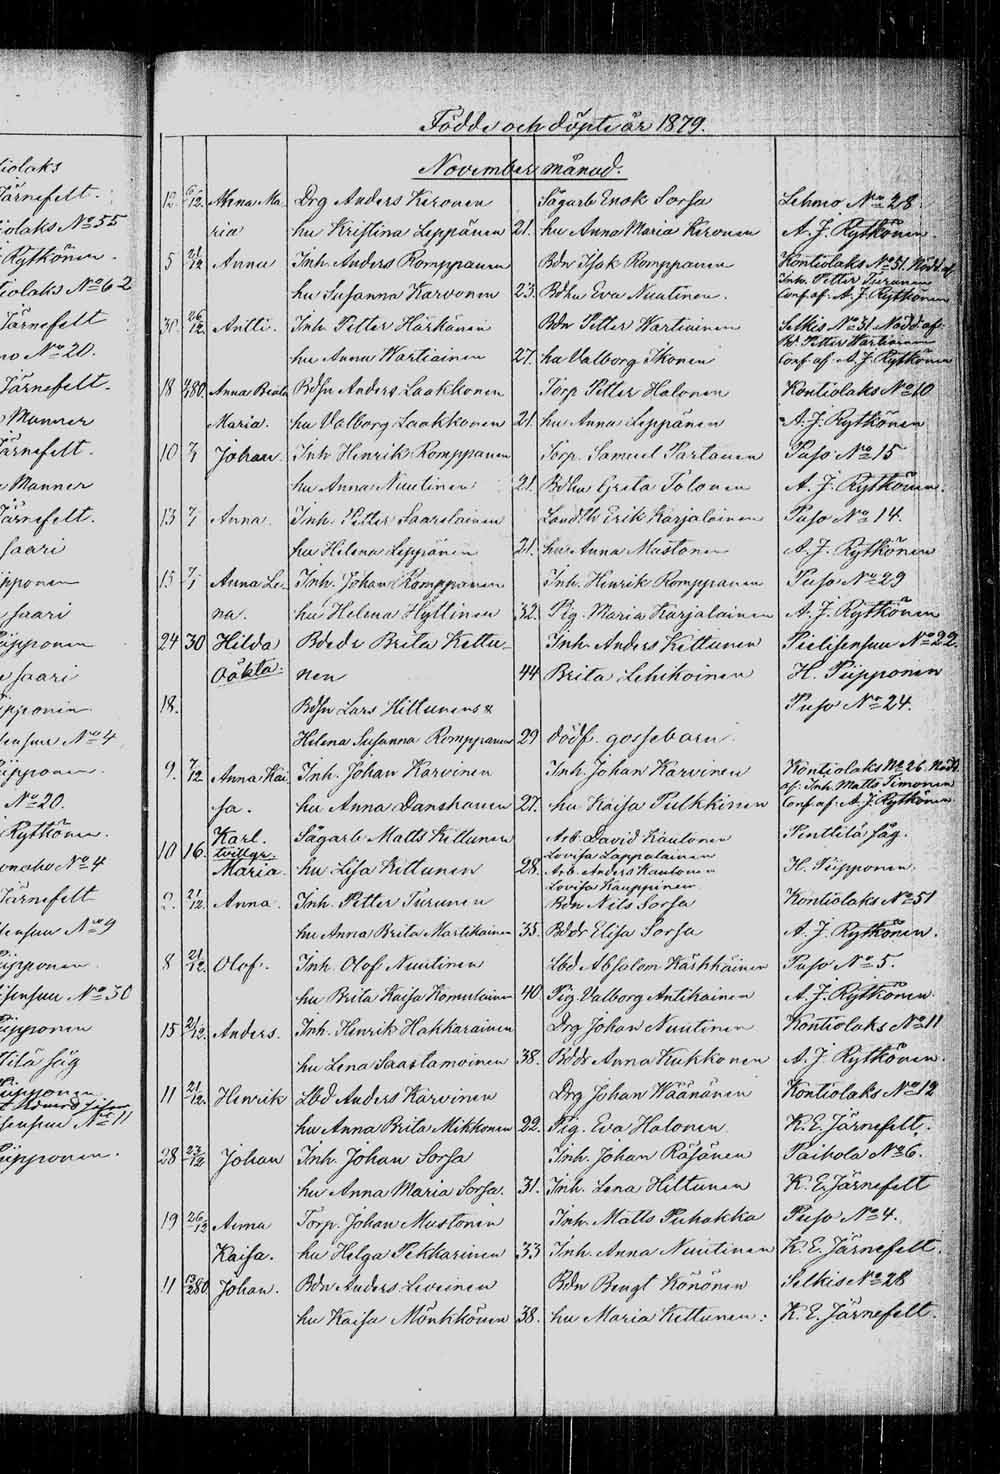 Födde och döpte år 1879.
November månad.
12 6/12. Anna Ma- Drg Anders Kironen Sågarb Enok Sorsa Lehmo No 28.
ria hu Kristina Leppänen 21. hu Anna Maria Kironen A. J. Rytkönen
5 21/12 Anna Inh. Anders Romppanen Bdn Isak Romppanen Kontiolaks No 31. Nödd. af
Inh. Petter Turunen
hu Susanna Karvonen 23. Bdhu Eva Nuutinen. Conf. af. A. J. Rytkönen
30 26/12 Antti. Inh. Petter Härkönen Bdn Petter Wartiainen Selkis No 31 Nödd. af.
Bd. Petter Wartiainen
hu Anna Wartiainen 27. hu Valborg Ikonen Conf. af. A. J. Rytkönen
18 80. Anna Brita Bdsn Anders Laakkonen Torp Petter Halonen Kontiolaks No 10
Maria. hu Valborg Laakkonen 21. hu Anna Leppänen A. J. Rytkönen
10 7/1 Johan. Inh Henrik Romppanen Torp. Samuel Partanen Puso No 15
hu Anna Nuutinen 21. Bdhu Greta Tolonen A. J. Rytkönen.
13 7/1 Anna. Inh. Petter Saarelainen Landth Erik Karjalainen Puso No 14.
hu Helena Leppänen 21. hu Anna Mustonen A. J. Rytkönen
13 7/1 Anna Le- Inh. Johan Romppanen Inh. Henrik Romppanen Puso No 29
na. hu Helena Hyttinen 32. Pig. Maria Karjalainen A. J. Rytkönen
24 30 Hilda Bdedr Brita Kettu- Inh. Anders Kettunen Pielisensuu No 22.
Oäkta nen 44 Brita Lehikoinen H. Piipponen
18. Bdsn Lars Hiltunens & Puso No 24.
Helena Susanna Romppanen 29 dödf. gossebarn.
9. 7/12 Anna Kai- Inh. Johan Karvinen Inh. Johan Karvinen Kontiolaks No 26. Nödd.
af. Inh. Matts Timonen
sa. hu Anna Danskanen 27. hu Kaisa Pulkkinen Conf. af. A. J. Rytkönen
Karl. Sågarb Matts Kettunen Arb. David Kautonen Penttilä såg.
10 16. tvillgr. Lovisa Lappalainen
Maria. hu Lisa Kettunen 28. Arb. Anders Kautonen H. Piipponen.
Lovisa Kauppinen
2. 21/12. Anna. Inh. Petter Turunen Bdn Nils Sorsa Kontiolaks No 51
hu Anna Brita Martikainen 35. Bddr Elisa Sorsa A. J. Rytkönen.
8 21/12. Olof. Inh. Olof Nuutinen Lbd Absalom Kärkkäinen Puso No 5.
hu Brita Kaisa Komulainen 40. Pig Valborg Antikainen A. J. Rytkönen
15 21/12. Anders. Inh. Henrik Hakkarainen Drg Johan Nuutinen Kontiolaks No 11
hu Lena Saastamoinen 38. Bddr Anna Kukkonen A. J. Rytkönen.
11 21/12. Henrik Lbd Anders Karvinen Drg Johan Wäänänen Kontiolaks No 12
hu Anna Brita Mikkonen 22. Pig. Eva Halonen K. E. Järnefelt.
28 23/12 Johan Inh. Johan Sorsa Inh. Johan Räsänen Paihola No 6.
hu Anna Maria Sorsa. 31. Inh. Lena Hiltunen K. E. Järnefelt
19 26/12 Anna Torp. Johan Mustonen Inh. Matts Puhakka Puso No 4.
Kaisa. hu Helga Pekkarinen 33 Inh. Anna Nuutinen K. E. Järnefelt.
11 80. Johan. Bdn Anders Leveinen Bdn Bengt Könönen Selkis No 28
hu Kaisa Mönkkönen 38. hu Maria Kettunen: K. E. Järnefelt.